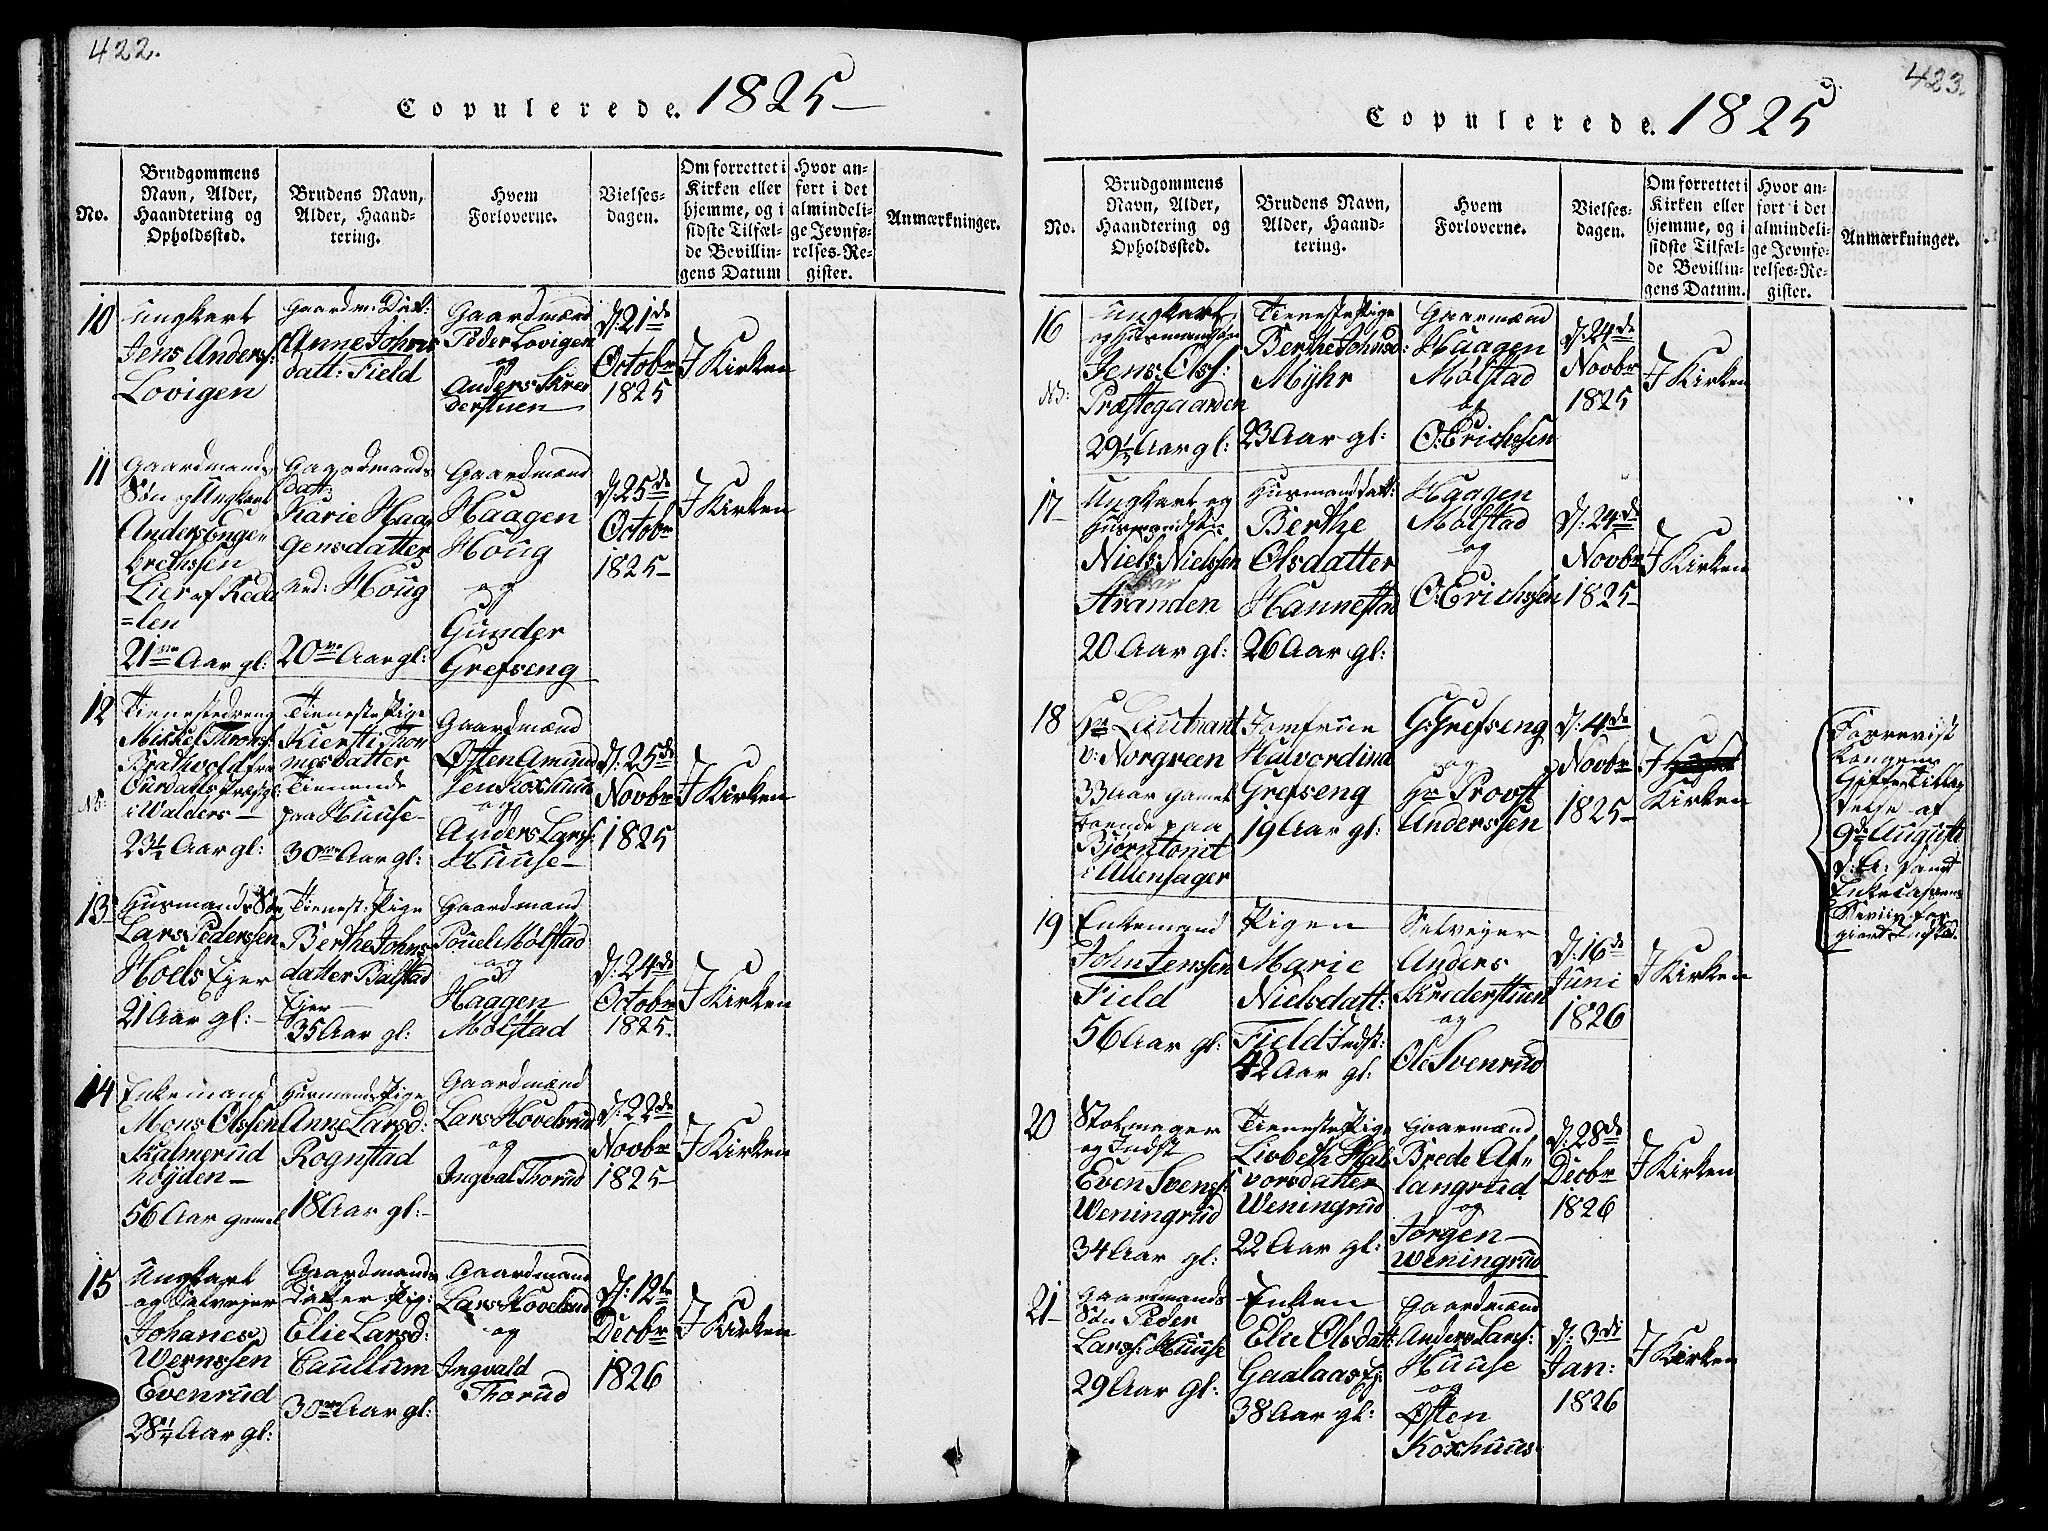 422.
Copulerede. 1825
No.
Brudgommens
Navn, Alder,
Haandtering og
Opholdssted.
Brudens Navn,
Alder, Haand-
tering.
Hvem
Forloverne.
Vielses-
dagen.
Om forrettet i
Kirken eller
hjemme, og i
sidste Tilfæl-
de Bevillin-
gens Datum
Hvor an-
ført i det
almindeli-
ge Jevnfø-
relses-Re-
gister.
Anmærkninger.
10
Ungkarl
Jens Anders:
Lovigen
Gaardm: Dat:
Anne Johns
datt: Field
Gaardmænd
Peder Lovigen
og
Anders Skre
derstuen
D: 21de
Octobr
1825
I Kirken
11
Gaardmands
Søn og Ungkarl
Anders Enge-
brethssen
Lier af
=len
21 Aar gl:
Gaardmands
datt:
Karie Haa
gensdatter
Houg
20 Aar gl:
Gaardmænd
Haagen
Houg
og
Gunder
Grefseng
D: 25de
Octobr
1825
I Kirken
12
NB:
Tienestedreng
Mikkel Throns:
Brathvold fra
Ourdals Præstgl
i Walders
23½ Aar gl:
Tieneste Pige
Kiersti Thor
mesdatter
Tienende
paa Huuse
30 Aar gl:
Gaardmænd
Østen Amund
sen Koxhuus
og
Anders Lars:
Huuse
D: 25de
Novbr
1825
I Kirken
13
Husmands Søn
Lars Pederssen
Hoels Ejer
21 Aar gl:
Tienest: Pige
Berthe Johns
datter Balstad
Ejer
35 Aar gl:
Gaardmænd
Poul Molstad
og
Haagen
Molstad
D: 24de
Octobr
1825
I Kirken
14
Enkemand
Mons Olssen
Skalmerud
höyden
56 Aar gamel
Husmands Pige
Anne Larsd:
Rognstad
18 Aar gl:
Gaardmænd
Lars Hovelsrud
og
Ingval Thorud
D: 22de
Novbr
1825
I Kirken
15
Ungkarl
og Selvejer
Johanes
Wernssen
Evenrud
28¼ Aar gl:
Gaardmands
Datter Pig:
Elie Larsd:
Caullum
30 Aar gl:
Gaardmænd
Lars Hovelsrud
og
Ingvald
Thorud
D: 12te
Decbr
1826
I Kirken
423.
Copulerede. 1825
No.
Brudgommens
Navn, Alder,
Haandtering og
Opholdssted.
Brudens Navn,
Alder, Haand-
tering.
Hvem
Forloverne.
Vielses-
dagen.
Om forrettet i
Kirken eller
hjemme, og i
sidste Tilfæl-
de Bevillin-
gens Datum.
Hvor an-
ført i det
almindeli-
ge Jevnfø-
relses-Re-
gister.
Anmærkninger.
16
NB:
Ungkarl
og Husmandsøn
Jens Ols:
Præstegaarden
29½ Aar gl:
Tieneste Pige
Berthe Johnsd:
Myhr
23 Aar gl:
Gaarmænd
Haagen
Molstad
og
O: Erichssen
D: 24de
Novbr
1825
I Kirken
17
Ungkarl og
Husmandsøn
Niels Nielssen
Stranden
20 Aar gl:
Husmand datt:
Berthe
Olsdatter
Hannestad
26 Aar gl:
Haagen
Molstad
og
O: Erichssen
D: 24de
Novbr
1825
I Kirken
18
Hr Lieutnant
v: Norgreen
33 Aar gamel
boende paa
Bjørntonet
i Ullensager
Jomfrue
Halvordina
Grefseng
19 Aar gl:
G: Grefseng
og
Hr Provst
Anderssen
D: 4de
Novbr
1825
I
Kirken
Forrevist
Kongens
Gifte Tilla
delse af
9de August
d: A: samt
Enkecassens
Reviis for
giort Indskud.
19
Enkemand
John Jenssen
Field
56 Aar gl:
Pigen
Marie
Nielsdatt:
Field Indst:
42 Aar gl:
Selvejer
Anders
Skrederstuen
og
Ole Svenrud
D: 16de
Juni
1826
I Kirken
20
Skomager
og Indst
Even Svens:
Weningrud
34 Aar gl:
Tieneste Pige
Lisbeth Hal
vorsdatter
Weningrud
22 Aar gl:
Gaarmænd
Brede Af=
langrud
og
Jørgen
Weningrud
D: 28de
Decbr
1826
I Kirken
21
Gaardmands
Søn Peder
Lars: Huuse
29 Aar gl:
Enken
Elie Olsdatt:
Gaalaas Ej:
38 Aar gl:
Gaardmænd
Anders Lars:
Huuse
og
Østen
Koxhuus
D: 3di
Jan:
1826
I Kirken